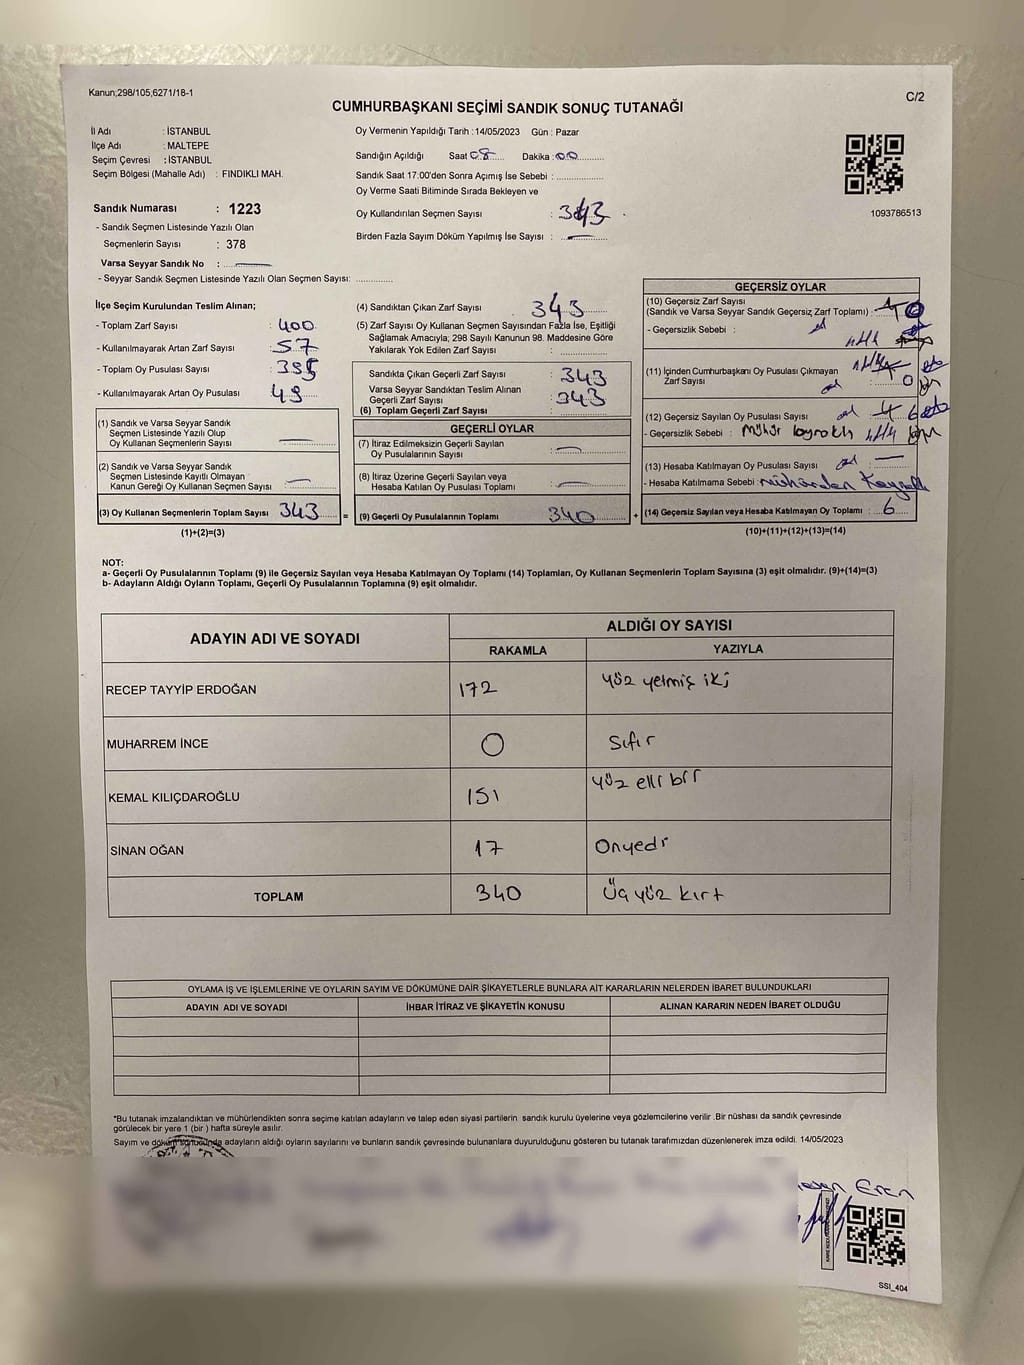 Kanun;298/105,6271/18-1
C/2
CUMHURBAŞKANI SEÇİMİ SANDIK SONUÇ TUTANAĞI
İl Adı : İSTANBUL
İlçe Adı : MALTEPE
Seçim Çevresi : İSTANBUL
Seçim Bölgesi (Mahalle Adı) : FINDIKLI MAH.
Sandık Numarası : 1223
- Sandık Seçmen Listesinde Yazılı Olan
Seçmenlerin Sayısı : 378
Varsa Seyyar Sandık No :
- Seyyar Sandık Seçmen Listesinde Yazılı Olan Seçmen Sayısı:
Oy Vermenin Yapıldığı Tarih : 14/05/2023 Gün : Pazar
Sandığın Açıldığı Saat 08 Dakika : 00
Sandık Saat 17:00'den Sonra Açımış İse Sebebi :
Oy Verme Saati Bitiminde Sırada Bekleyen ve
Oy Kullandırılan Seçmen Sayısı : 343
Birden Fazla Sayım Döküm Yapılmış İse Sayısı : —
1093786513
İlçe Seçim Kurulundan Teslim Alınan;
- Toplam Zarf Sayısı : 400
- Kullanılmayarak Artan Zarf Sayısı : 57
- Toplam Oy Pusulası Sayısı : 395
- Kullanılmayarak Artan Oy Pusulası : 49
(1) Sandık ve Varsa Seyyar Sandık
Seçmen Listesinde Yazılı Olup
Oy Kullanan Seçmenlerin Sayısı : —
(2) Sandık ve Varsa Seyyar Sandık
Seçmen Listesinde Kayıtlı Olmayan
Kanun Gereği Oy Kullanan Seçmen Sayısı : —
(3) Oy Kullanan Seçmenlerin Toplam Sayısı : 343
(1)+(2)=(3)
(4) Sandıktan Çıkan Zarf Sayısı : 343
(5) Zarf Sayısı Oy Kullanan Seçmen Sayısından Fazla İse, Eşitliği
Sağlamak Amacıyla; 298 Sayılı Kanunun 98. Maddesine Göre
Yakılarak Yok Edilen Zarf Sayısı :
Sandıkta Çıkan Geçerli Zarf Sayısı : 343
Varsa Seyyar Sandıktan Teslim Alınan
Geçerli Zarf Sayısı : 343
(6) Toplam Geçerli Zarf Sayısı :
GEÇERLİ OYLAR
(7) İtiraz Edilmeksizin Geçerli Sayılan
Oy Pusulalarının Sayısı : —
(8) İtiraz Üzerine Geçerli Sayılan veya
Hesaba Katılan Oy Pusulası Toplamı : —
= (9) Geçerli Oy Pusulalarının Toplamı : 340 +
GEÇERSİZ OYLAR
(10) Geçersiz Zarf Sayısı
(Sandık ve Varsa Seyyar Sandık Geçersiz Zarf Toplamı) : 0
- Geçersizlik Sebebi :
(11) İçinden Cumhurbaşkanı Oy Pusulası Çıkmayan
Zarf Sayısı : 0
(12) Geçersiz Sayılan Oy Pusulası Sayısı : 6
- Geçersizlik Sebebi : Mühür
(13) Hesaba Katılmayan Oy Pusulası Sayısı : —
- Hesaba Katılmama Sebebi :
(14) Geçersiz Sayılan veya Hesaba Katılmayan Oy Toplamı : 6
(10)+(11)+(12)+(13)=(14)
NOT:
a- Geçerli Oy Pusulalarının Toplamı (9) ile Geçersiz Sayılan veya Hesaba Katılmayan Oy Toplamı (14) Toplamları, Oy Kullanan Seçmenlerin Toplam Sayısına (3) eşit olmalıdır. (9)+(14)=(3)
b- Adayların Aldığı Oyların Toplamı, Geçerli Oy Pusulalarının Toplamına (9) eşit olmalıdır.
ADAYIN ADI VE SOYADI
ALDIĞI OY SAYISI
RAKAMLA YAZIYLA
RECEP TAYYİP ERDOĞAN 172 yüz yetmiş iki
MUHARREM İNCE 0 Sıfır
KEMAL KILIÇDAROĞLU 151 yüz elli bir
SİNAN OĞAN 17 Onyedi
TOPLAM 340 Üç yüz kırt
OYLAMA İŞ VE İŞLEMLERİNE VE OYLARIN SAYIM VE DÖKÜMÜNE DAİR ŞİKAYETLERLE BUNLARA AİT KARARLARIN NELERDEN İBARET BULUNDUKLARI
ADAYIN ADI VE SOYADI İHBAR İTİRAZ VE ŞİKAYETİN KONUSU ALINAN KARARIN NEDEN İBARET OLDUĞU
*Bu tutanak imzalandıktan ve mühürlendikten sonra seçime katılan adayların ve talep eden siyasi partilerin sandık kurulu üyelerine veya gözlemcilerine verilir .Bir nüshası da sandık çevresinde
görülecek bir yere 1 (bir ) hafta süreyle asılır.
Sayım ve döküm sonucunda adayların aldığı oyların sayılarını ve bunların sandık çevresinde bulunanlara duyurulduğunu gösteren bu tutanak tarafımızdan düzenlenerek imza edildi. 14/05/2023
Eren
SSI_404